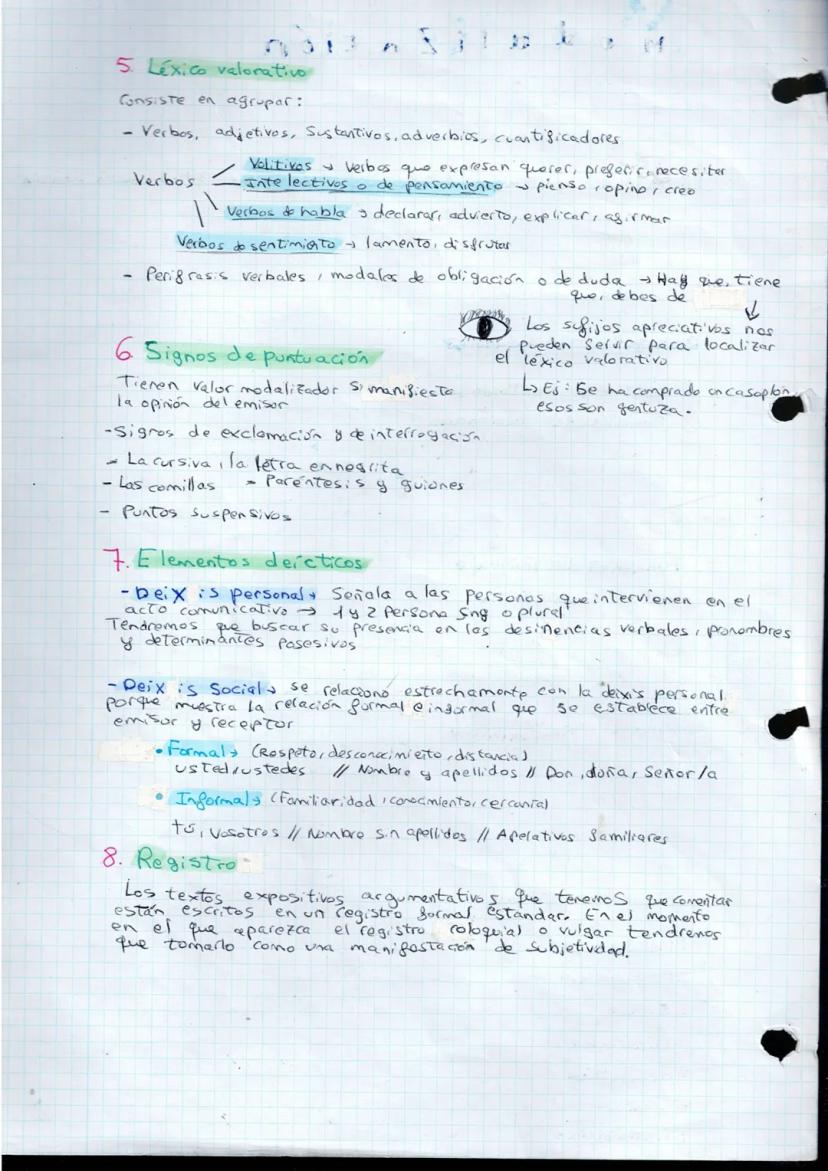 5. Léxico valorativo
Consiste en agrupar:
- Verbos, adjetivos, Sustantivos, adverbios, cuantificadores
Verbos
Volitivos → Verbos que expresan querer, preferir, necesitar
Intelectivos o de pensamiento → pienso, opino, creo
Verbos de habla → declarar, advierto, explicar, afirmar
Verbos de sentimiento → lamento, disfrutar
- Perifrasis verbales, modales de obligación o de duda → Hay que, tiene
que, debes de
Los sufijos apreciativos nos
pueden servir para localizar
el léxico valorativo
↳ Ej: Se ha comprado un casoplón,
esos son gentuza.
6 Signos de puntuación
Tienen valor modalizador si manifiesta
la opinión del emisor
- Signos de exclamación y de interrogación
- La cursiva, la letra en negrita
- Las comillas - Paréntesis y guiones
- Puntos suspensivos
7. Elementos deícticos
- Deixis personal → Señala a las personas que intervienen en el
acto comunicativo → 1 y 2 Persona sng o plural
Tendremos que buscar su presencia en las desinencias verbales, pronombres
y determinantes posesivos
- Deixis Social → se relaciona estrechamente con la deixis personal
porque muestra la relación formal e informal que se establece entre
emisor y receptor
• Formal → (Respeto, desconocimiento, distancia)
usted/ustedes // Nombre y apellidos // Don, doña, Señor/a
• Informal → (Familiaridad, conocimiento, cercanía)
tú, vosotros // Nombre sin apellidos // Apelativos familiares
8. Registro
Los textos expositivos argumentativos que tenemos que comentar
están escritos en un registro formal estandar. En el momento
en el que aparezca el registro coloquial o vulgar tendremos
que tomarlo como una manifestación de subjetividad.